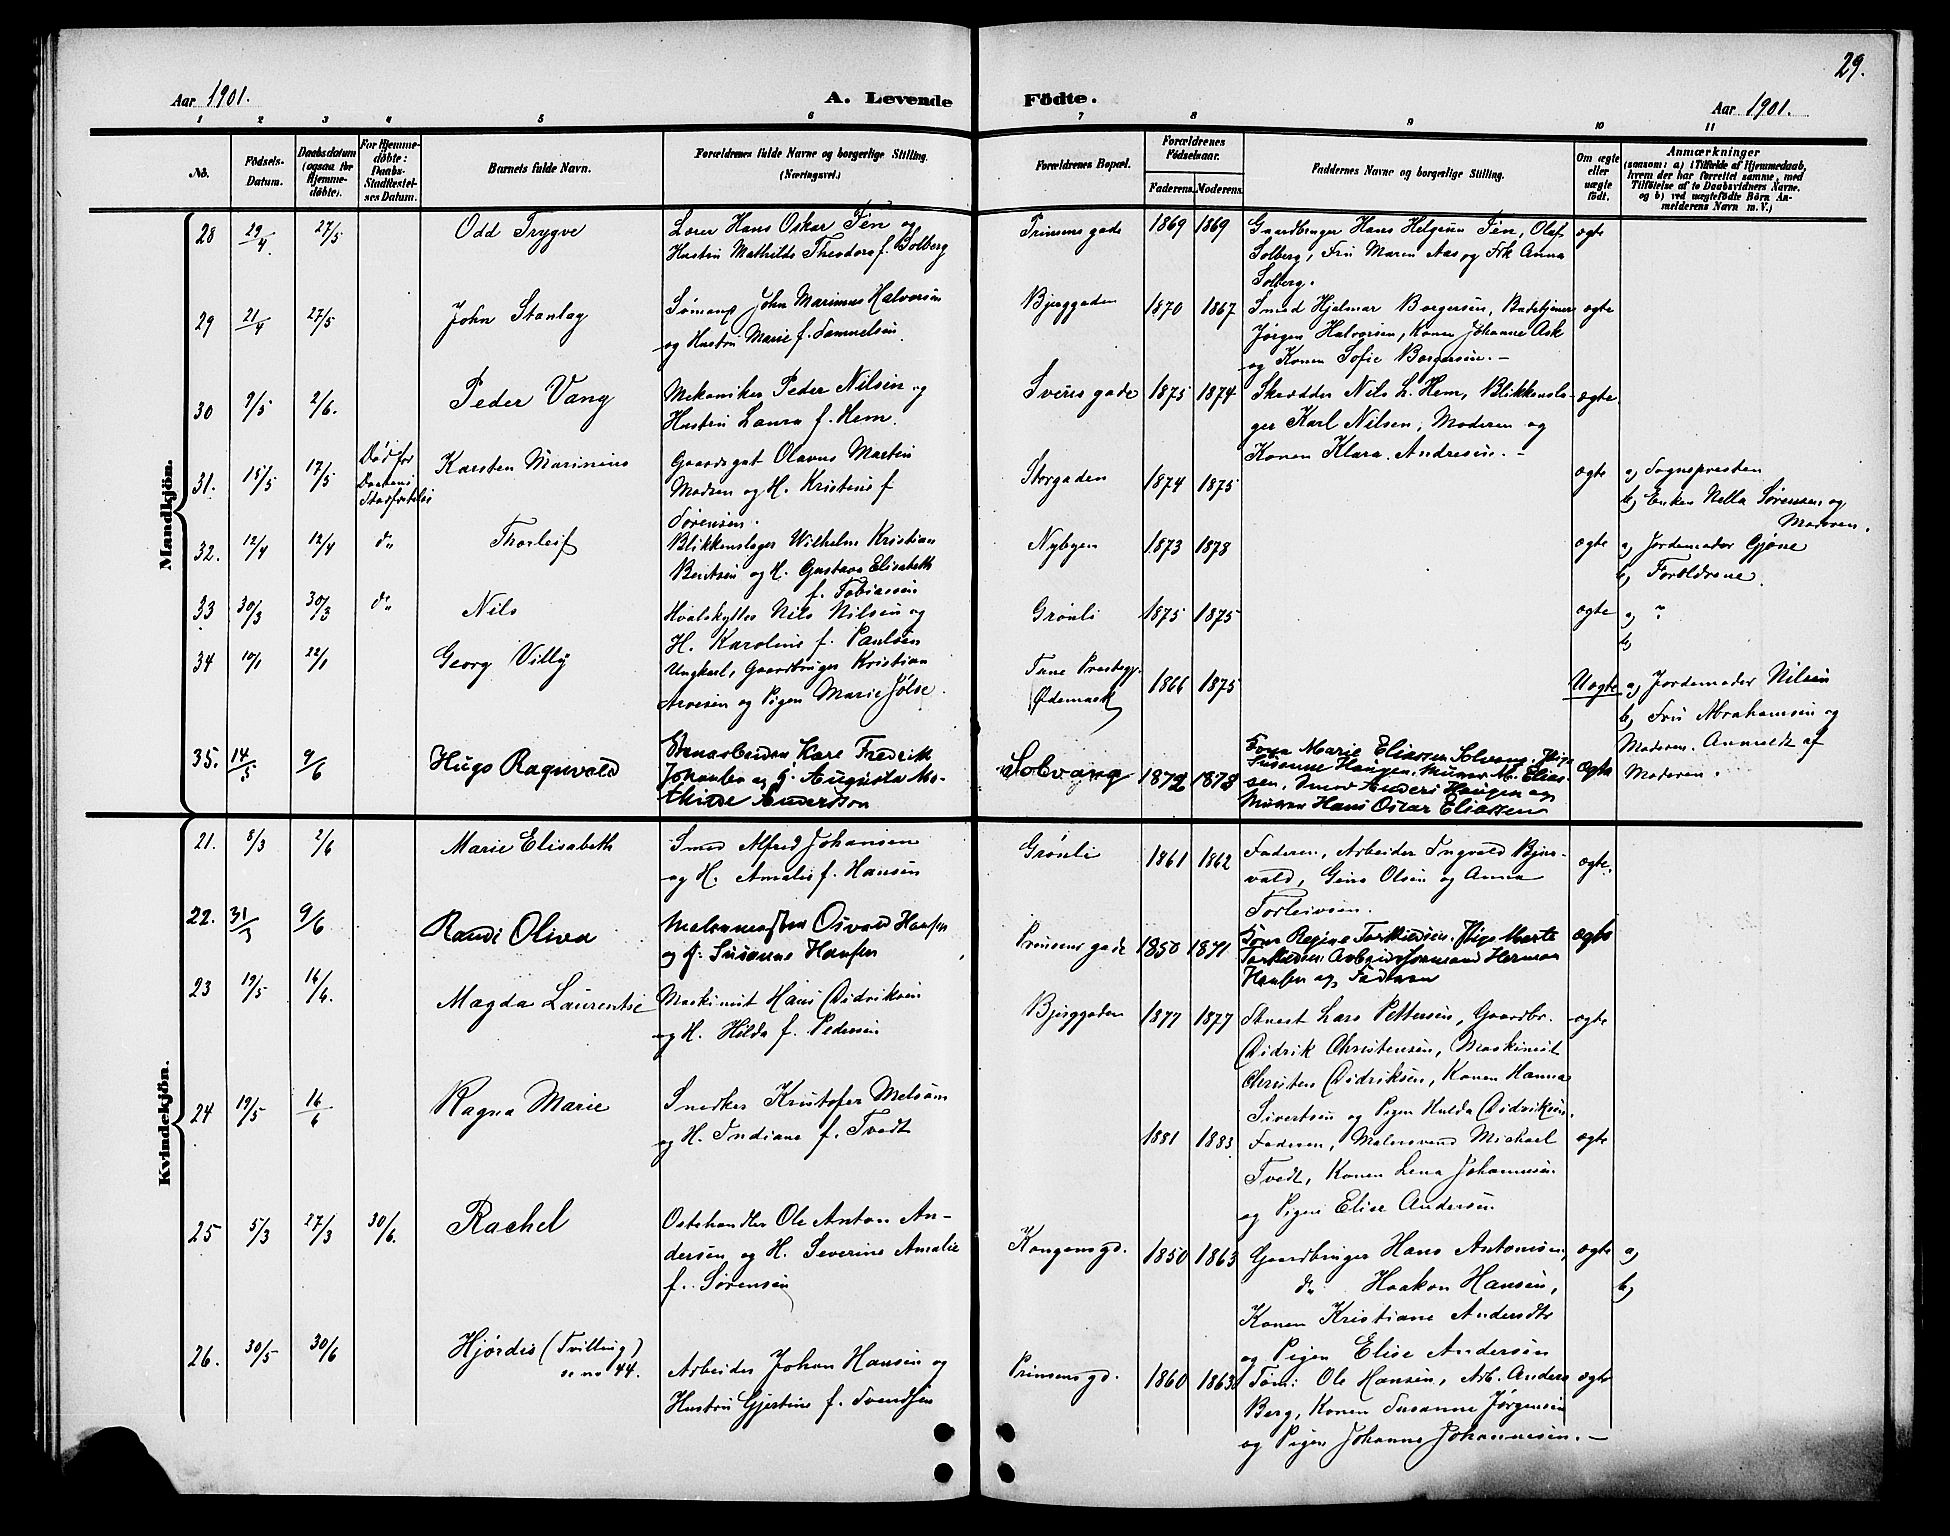 29.
Aar 1901.
A. Levende Födte.
Aar 1901.
1 2 3 4 5 6 7 8 9 10 11
No.
Födsels-Datum.
Daabsdatum (ogsaa for Hjemme-døbte).
For Hjemme-døbte: Daabs-Stadfæstel-ses Datum.
Barnets fulde Navn.
Forældrenes fulde Navne og borgerlige Stilling.
(Næringsvei.)
Forældrenes Bopæl.
Forældrenes Födselsaar.
Faderens. Moderens.
Faddernes Navne og borgerlige Stilling.
Om ægte eller uægte født.
Anmærkninger
(saasom: a) i Tilfælde af Hjemmedaab, hvem der har forrettet samme, med Tilföielse af to Daabsvidners Navne. og b) ved uægtefødte Börn An-melderens Navn m. V.)
Mandkjön.
28 29/4 27/5 Odd Trygve
Lærer Hans Oskar Fen og
Hustru Mathilde Theodora f. Solberg
Prinsens gade 1869 1869
Gaardbruger Hans Helgesen Fen, Olaf
Solberg, Fru Maren Aas og Frk Anna
Solberg.
ægte
29 21/4 27/5 John Stanlay
Sømand John Marinius Halvorsen
og Hustru Marie f. Samuelsen.
Bjerggaden 1870 1867
Smed Hjelmar Borgersen, Badetjener
Jørgen Halvorsen, Konen Johanne Ask
og Konen Sofie Borgersen. -
ægte
30 9/5 2/6. Peder Vang
Mekaniker Peder Nilsen og
Hustru Laura f. Hem.
Sverres gade 1875 1874
Skrædder Nils L. Hem, Blikkensla-
ger Karl Nilsen, Moderen og
Konen Klara Andresen. -
ægte
31. 15/5 17/5 Død før
Daabens
Stadfæstelse
Karsten Marinius
Gaardsgut Olavus Martin
Madsen og H. Kristine f
Sørensen.
Storgaden 1874 1875
ægte
a) Sognepresten
b) Enken Nella Sørensen og
Moderen.
32. 12/4 12/4 do Thorleif
Blikkenslager Wilhelm Kristian
Berntsen og H. Gustava Elisabeth
f. Tobiassen
Nybyen 1873 1878
ægte
a) Jordemoder Gjøne
b) Forældrene.
33 30/3 30/3 do Nils
Hvalskytter Nils Nilsen og
H. Karoline f. Paulsen
Grønli 1875 1875
ægte
a) "
b)
34 10/1 22/1 Georg Villy
Ungkarl, Gaardbruger Kristian
Arvesen og Pigen Marie Jølse.
Tune Prestegj.
Ødemark 1866 1875
Uægte
a) Jordemoder Nilsen
b) Fru Abrahamsen og
Moderen. Anmeldt af
Moderen.
35. 14/5 9/6 Hugo Ragnvald
Karl Fredrik
Augusta Ma-
thilde Anderson
Solvang 1872 1878
Kone Marie Eliassen Solvang, Pige
Susanne Haugen, Murer M. Elias-
sen, Smed Anders Haugen og
Murer Hans Oscar Eliassen
ægte
Kvindekjön.
21. 8/3 2/6 Marie Elisabeth
Smed Alfred Johansen
og H. Amalie f. Hansen
Grønli 1861 1862
Faderen, Arbeider Ingvald Bjer-
vald, Gina Olsen og Anna
Torleivsen.
ægte.
22. 31/3 9/6 Randi Oliva
Malermester Osvald Hansen
og H. Susanne Hansen
Prinsens gade 1850 1871
Kone Regine Torkildsen, Pige Marte
Torkildsen, Arbeidsformand Herman
Hansen og Faderen
ægte
23 19/5 16/6. Magda Laurentse
Maskinist Hans Didriksen
og H. Hilda f. Pedersen
Bjerggaden 1877 1877
Stuert Lars Pettersen, Gaardbr.
Didrik Christensen, Maskinist
Christen Didriksen, Konen Hanna
Sivertsen og Pigen Hulda Didriksen.
ægte
24 19/5 16/6 Ragna Marie
Snedker Kristofer Melsom
og H. Indiane f. Tvedt
1881 1883
Faderen, Malersvend Michael
Tvedt, Konen Lena Johannesen
og Pigen Elise Andersen
ægte
25 5/3 27/3 30/6. Rachel
Ostehandler Ole Anton An-
dersen og H. Severine Amalie
f. Sørensen
Kongensgd. 1850 1863
Gaardbruger Hans Antonisen,
do Haakon Hansen,
Konen Kristiane Andersdtr
og Pigen Elise Andersen
ægte
a)
b)
26. 30/5 30/6 Hjørdis (Tvilling)
se no 44.
Arbeider Johan Hansen og
Hustru Gjertine f. Svendsen
Prinsensgd. 1860 1863
Tøm: Ole Hansen, Arb. Anders
Berg, Konen Susanne Jørgensen
og Pigen Johanne Johannesen. -
ægte